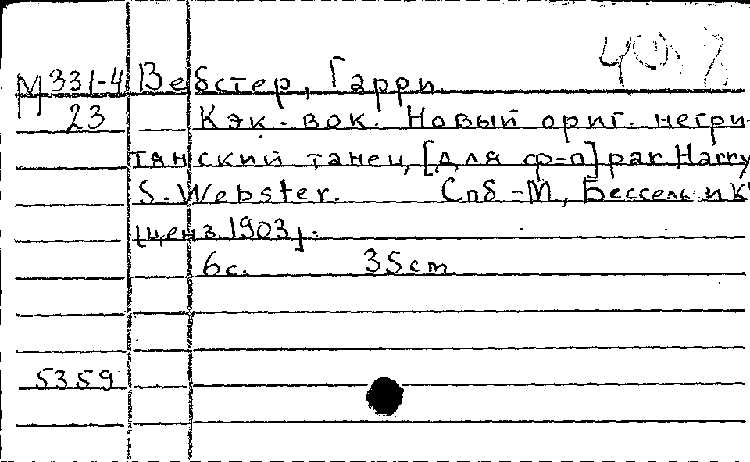 М 331-4 Вебстер, Гарри.
23 Кэк-вок. Новый ориг. негри-
тянский танец, [для ф-п] par Harry
S. Webster. Спб-М, Бессель и К°
[ценз. 1903].
6с. 35cm
5359